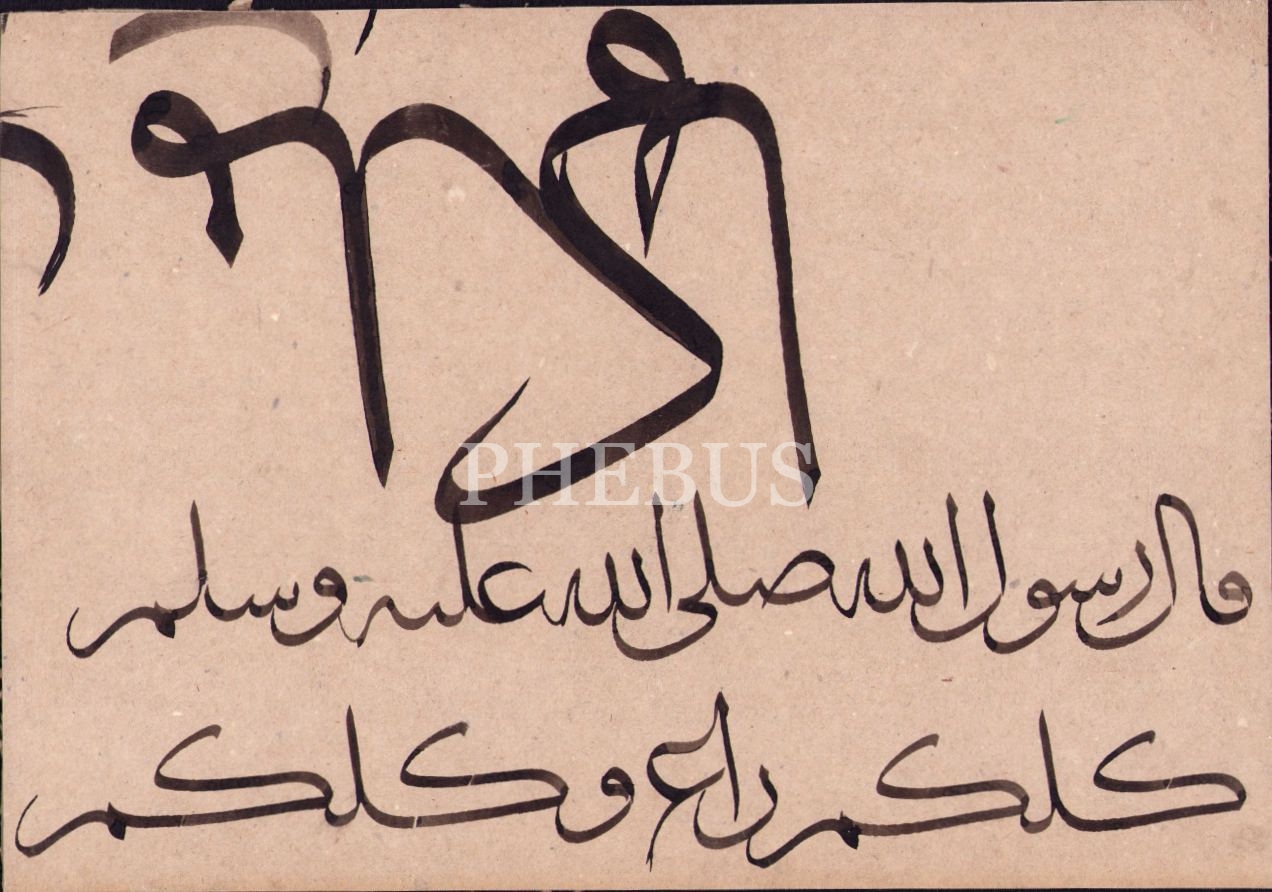 PHEBUS
قال رسول الله صلى الله عليه وسلم
كلكم راع وكلكم